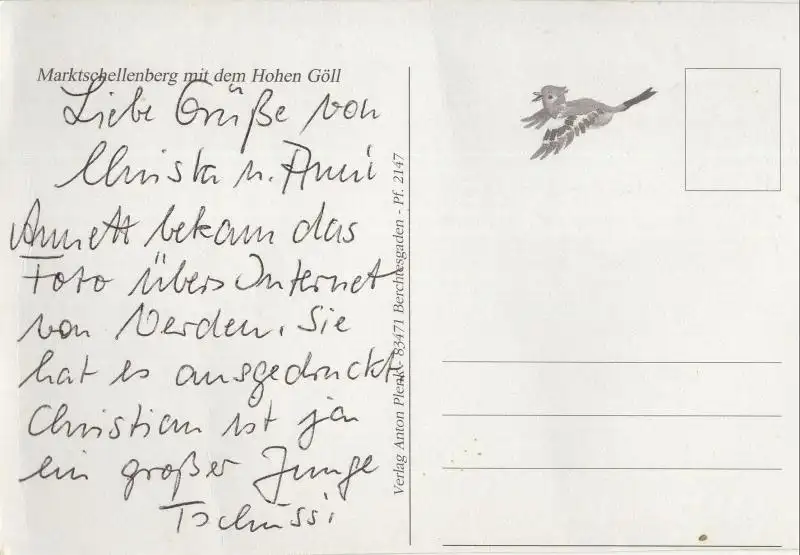 Marktschellenberg mit dem Hohen Göll
Liebe Grüße von
Christa u. Anni
Annett bekam das
Foto übers Internet
von Verden. Sie
hat es ausgedruckt.
Christian ist ja
ein großer Junge
Tschüssi
Verlag Anton Plenk - 83471 Berchtesgaden - Pf. 2147